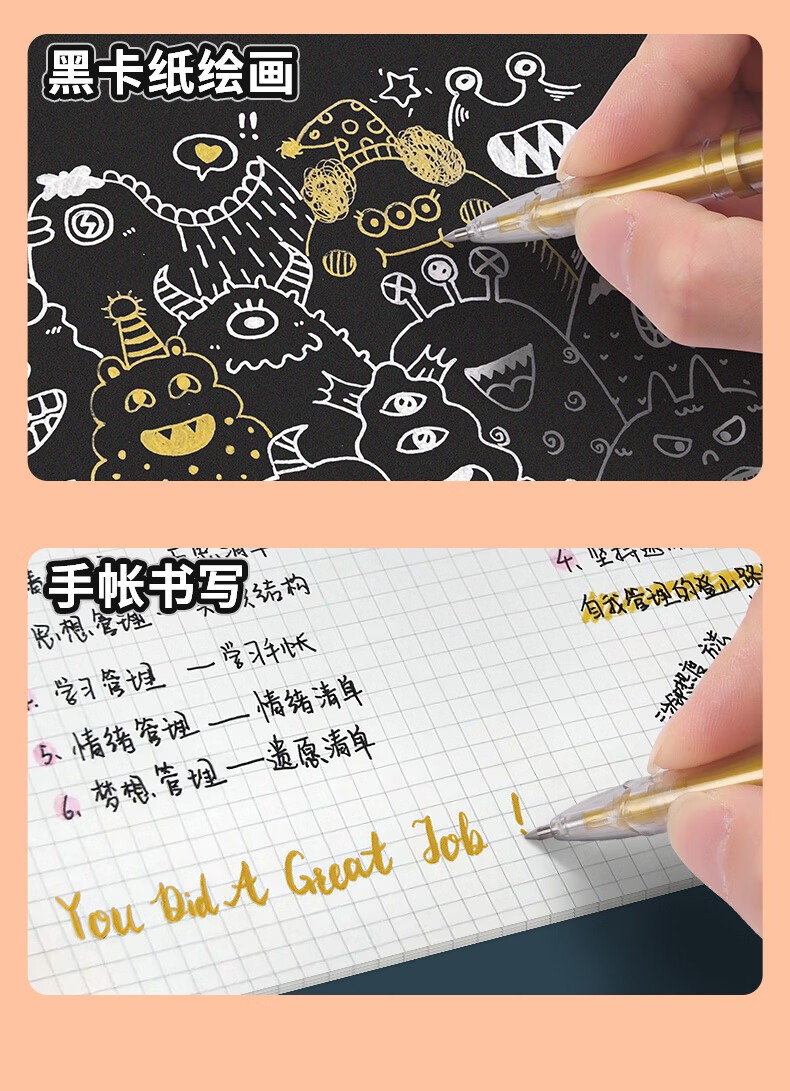 黑卡纸绘画
!!
手帐书写
思想管理
结构
4、坚持
自我管理的登山路
学习管理 — 学习手帐
5、情绪管理 — 情绪清单
6、梦想管理 — 遗愿清单
You Did A Great Job !